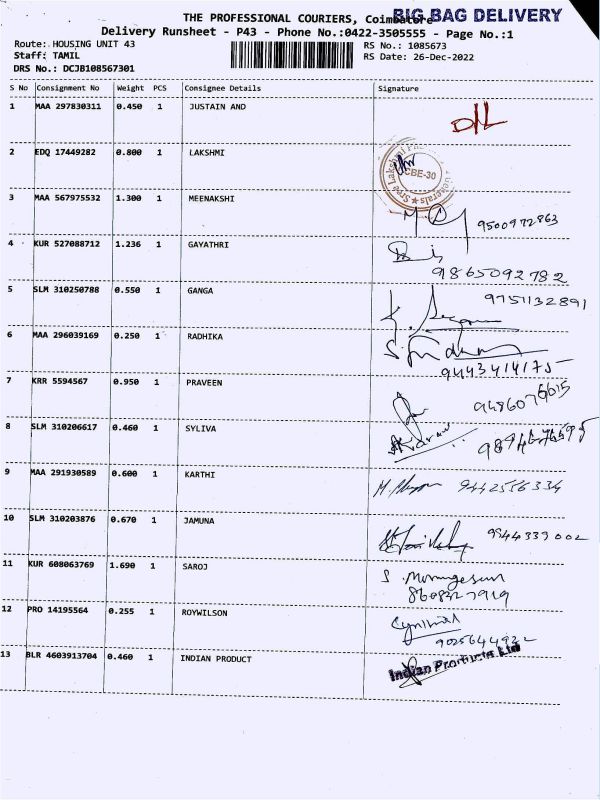 THE PROFESSIONAL COURIERS, Coimbatore
BIG BAG DELIVERY
Delivery Runsheet - P43 - Phone No.:0422-3505555 - Page No.:1
Route: HOUSING UNIT 43
RS No.: 1085673
Staff: TAMIL
RS Date: 26-Dec-2022
DRS No.: DCJB108567301
S No Consignment No Weight PCS Consignee Details Signature
1 MAA 297830311 0.450 1 JUSTAIN AND D/L
2 EDQ 17449282 0.800 1 LAKSHMI
CBE-30
3 MAA 567975532 1.300 1 MEENAKSHI
9500972863
4 KUR 527088712 1.236 1 GAYATHRI
9865092782
5 SLM 310250788 0.550 1 GANGA 9751132891
6 MAA 296039169 0.250 1 RADHIKA
9443414175
7 KRR 5594567 0.950 1 PRAVEEN
8 SLM 310206617 0.460 1 SYLIVA
9 MAA 291930589 0.600 1 KARTHI 9442556334
10 SLM 310203876 0.670 1 JAMUNA 9944339002
11 KUR 608063769 1.690 1 SAROJ S. Murugesan
8608327919
12 PRO 14195564 0.255 1 ROYWILSON
9025644932
13 BLR 4603913704 0.460 1 INDIAN PRODUCT Indian Products Ltd